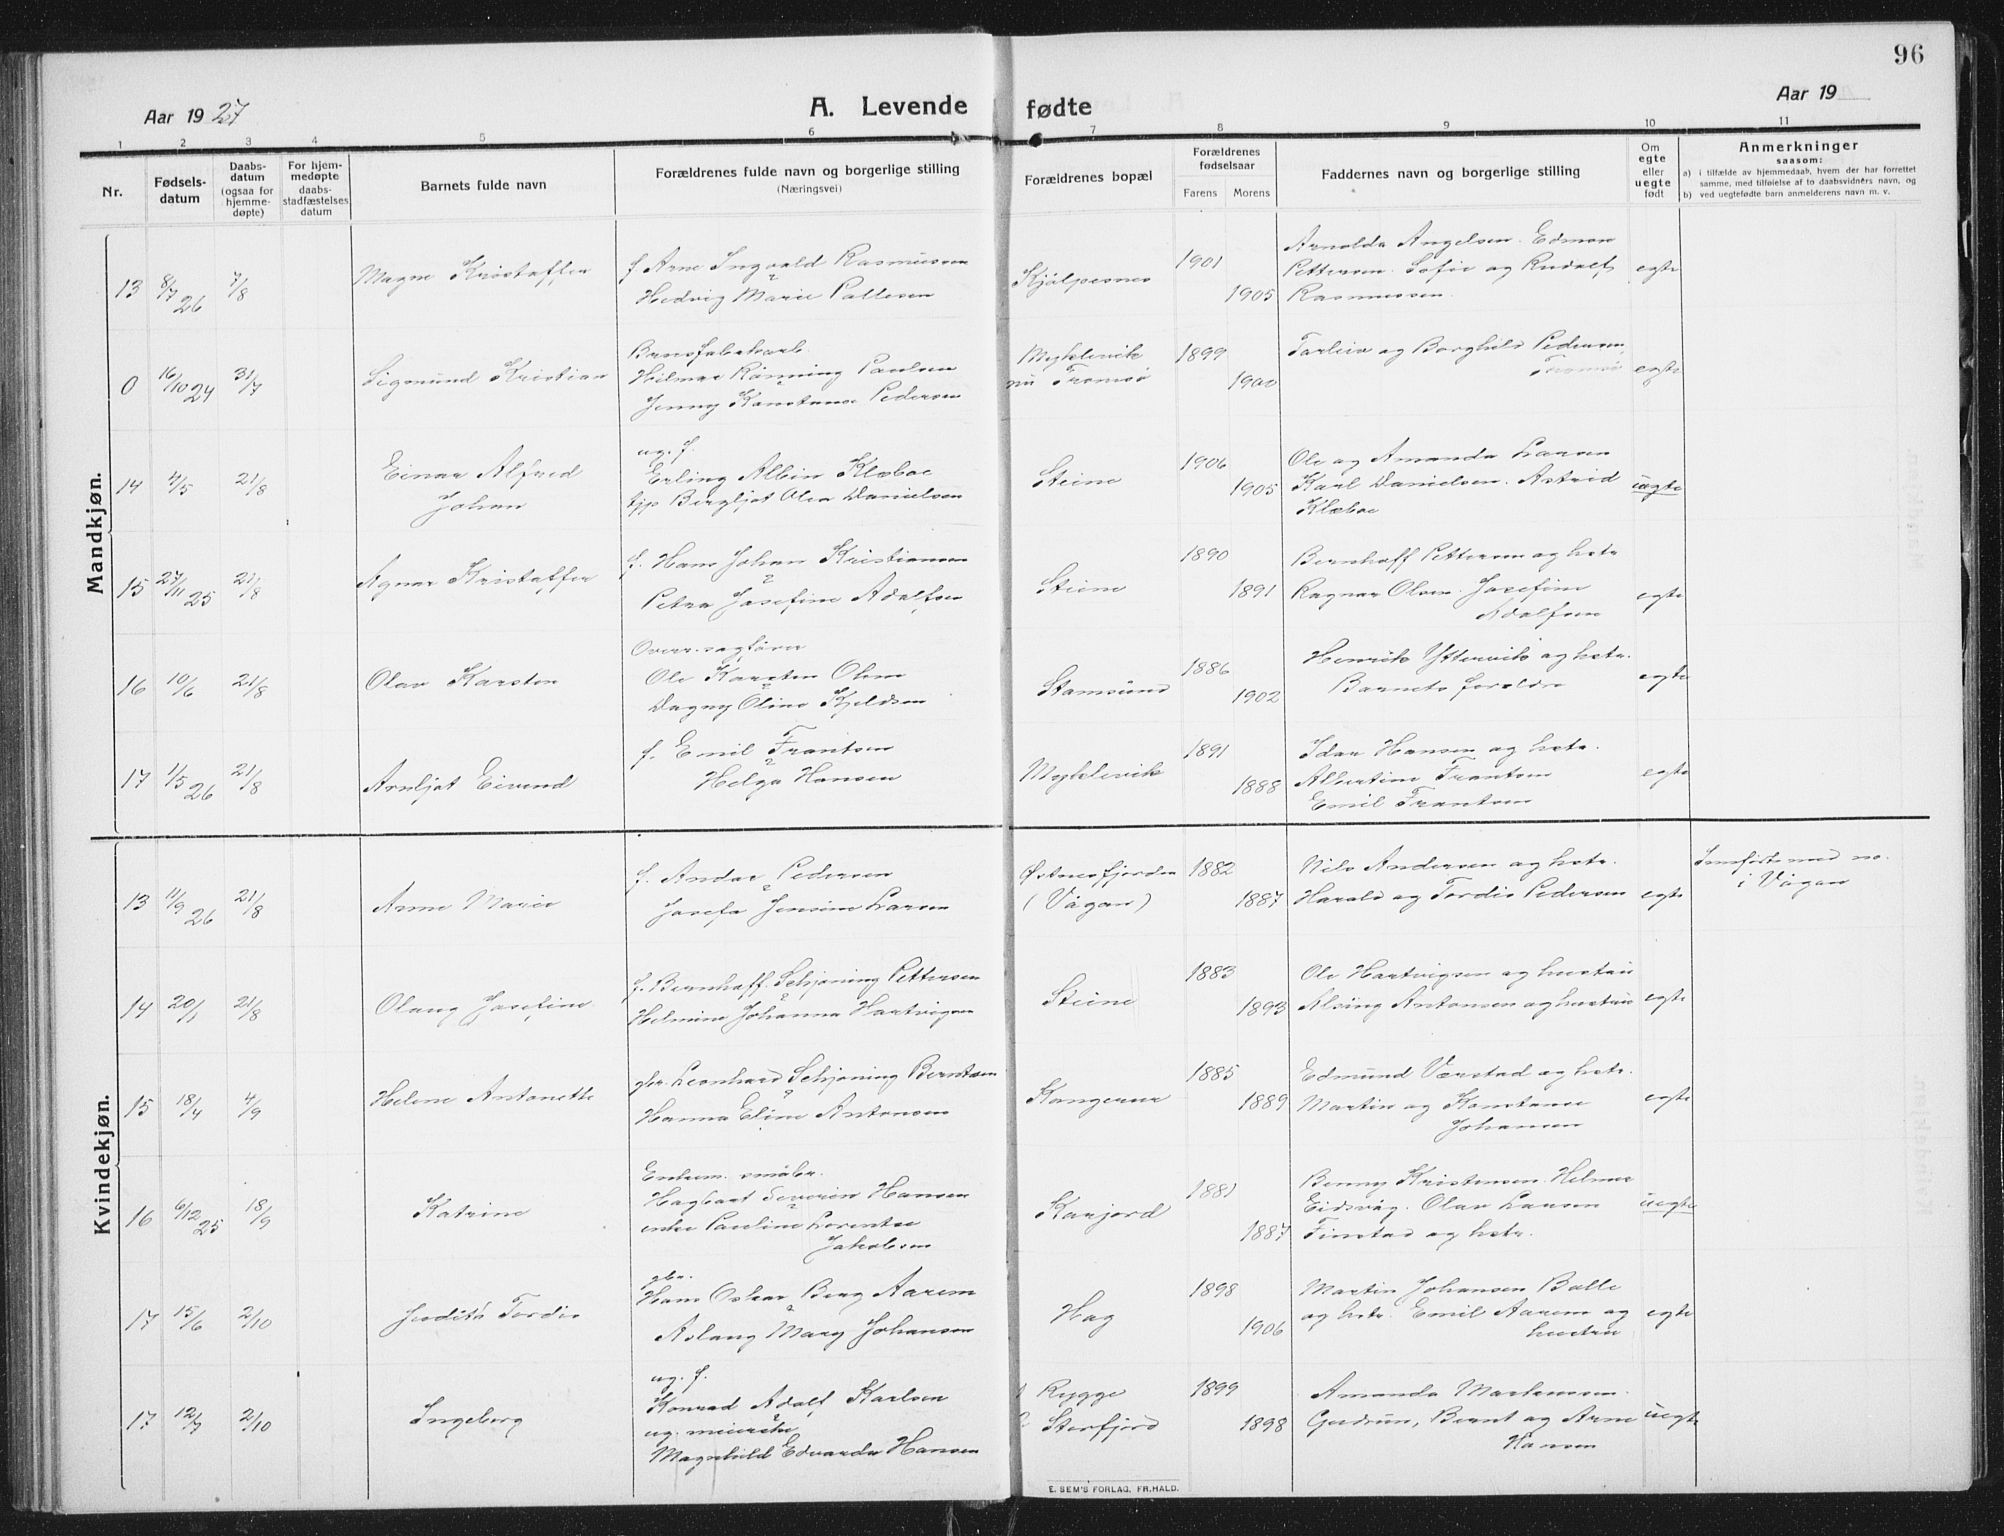 96
Aar 1927
A. Levende fødte
Aar 19
1 2 3 4 5 6 7 8 9 10 11
Nr.
Fødsels-
datum
Daabs-
datum
(ogsaa for
hjemme-
døpte)
For hjem-
medøpte
daabs-
stadfæstelses
datum
Barnets fulde navn
Forældrenes fulde navn og borgerlige stilling
(Næringsvei)
Forældrenes bopæl
Forældrenes
fødselsaar
Farens Morens
Faddernes navn og borgerlige stilling
Om
egte
eller
uegte
født
Anmerkninger
saasom:
a) i tilfælde av hjemmedaab, hvem der har forrettet
samme, med tilføielse af to daabsvidners navn, og
b) ved uegtefødte barn anmelderens navn m. v.
Mandkjøn.
13 8/7 26 7/8 Magne Kristoffer
f. Arne Ingvald Rasmussen
Hedvig Marie Pallesen
Kjølpesnes 1901 1905
Arnolda Angelsen. Edmon
Pettersen. Sofie og Rudolf
Rasmussen.
egte
0 16/10 24 31/7 Sigmund Kristian
Hilmar Rønning Paulsen
Jenny Konstanse Pedersen
Myklevik
nu Tromsø
1899 1900
Torleiv og Borghild Pedersen,
Tromsø
egte
14 4/5 21/8 Einar Alfred
Johan
ug. f.
Erling Albin Klæboe
tjp Bergljot Olea Danielsen
Steine 1906 1905
Ole og Amanda Larsen
Karl Danielsen. Astrid
Klæboe
uegte
15 27/11 25 21/8 Agnar Kristoffer
f. Hans Johan Kristiansen
Petra Josefine Adolfsen
Steine 1890 1891
Bernhoff Pettersen og hstr
Ragnar Olsen. Josefine
Adolfsen
egte
16 10/6 21/8 Olav Karsten
Overr.sagfører
Ole Karsten Olsen
Dagny Oline Kjeldsen
Stamsund 1886 1902
Henrik Yttervik og hstr.
Barnets foreldre
egte
17 1/5 26 21/8 Arnljot Eivind
f. Emil Frantsen
Helga Hansen
Myklevik 1891 1888
Idar Hansen og hstr.
Albertine Frantsen
Emil Frantsen
egte
Kvindekjøn.
13 11/9 26 21/8 Anne Marie
f. Andor Pedersen
Josefa Jensine Larsen
Østnesfjorden
(Vågan)
1882 1887
Nils Andersen og hstr.
Harald og Tordis Pedersen
egte
Innført med no.
i Vågan
14 20/1 21/8 Olaug Josefine
f. Bernhoff Schjøning Pettersen
Helmine Johanna Hartvigsen
Steine 1883 1893
Ole Hartvigsen og hustru
Alsing Antonsen og hustru
egte
15 18/4 4/9 Helene Antonette
gbr. Leonhard Schjøning Berntsen
Hanna Eline Antonsen
Kangerur 1885 1889
Edmund Værstad og hstr.
Martin og Konstanse
Johansen
egte
16 6/12 25 18/9 Katrine
Enkem. småbr.
Hagbart Severin Hansen
enke Pauline Lorentse
Jakobsen
Karjord 1881 1887
Benny Kristensen. Helmer
Eidsvåg. Olav Larsen
Finstad og hstr.
uegte
17 15/6 2/10 Judith Tordis
gbr.
Hans Oskar Berg Aarem
Aslaug Mary Johansen
Hag 1898 1906
Martin Johansen Balle
og hstr. Emil Aarem og
hustru
egte
17 12/7 2/10 Ingeborg
ug. f.
Konrad Adolf Karlsen
ug. meierske
Magnhild Edvarda Hansen
Rygge
Storfjord
1899 1898
Amanda Mortensen.
Gudrun, Bernt og Arne
Hansen
uegte
E. SEM'S FORLAG, FR.HALD.